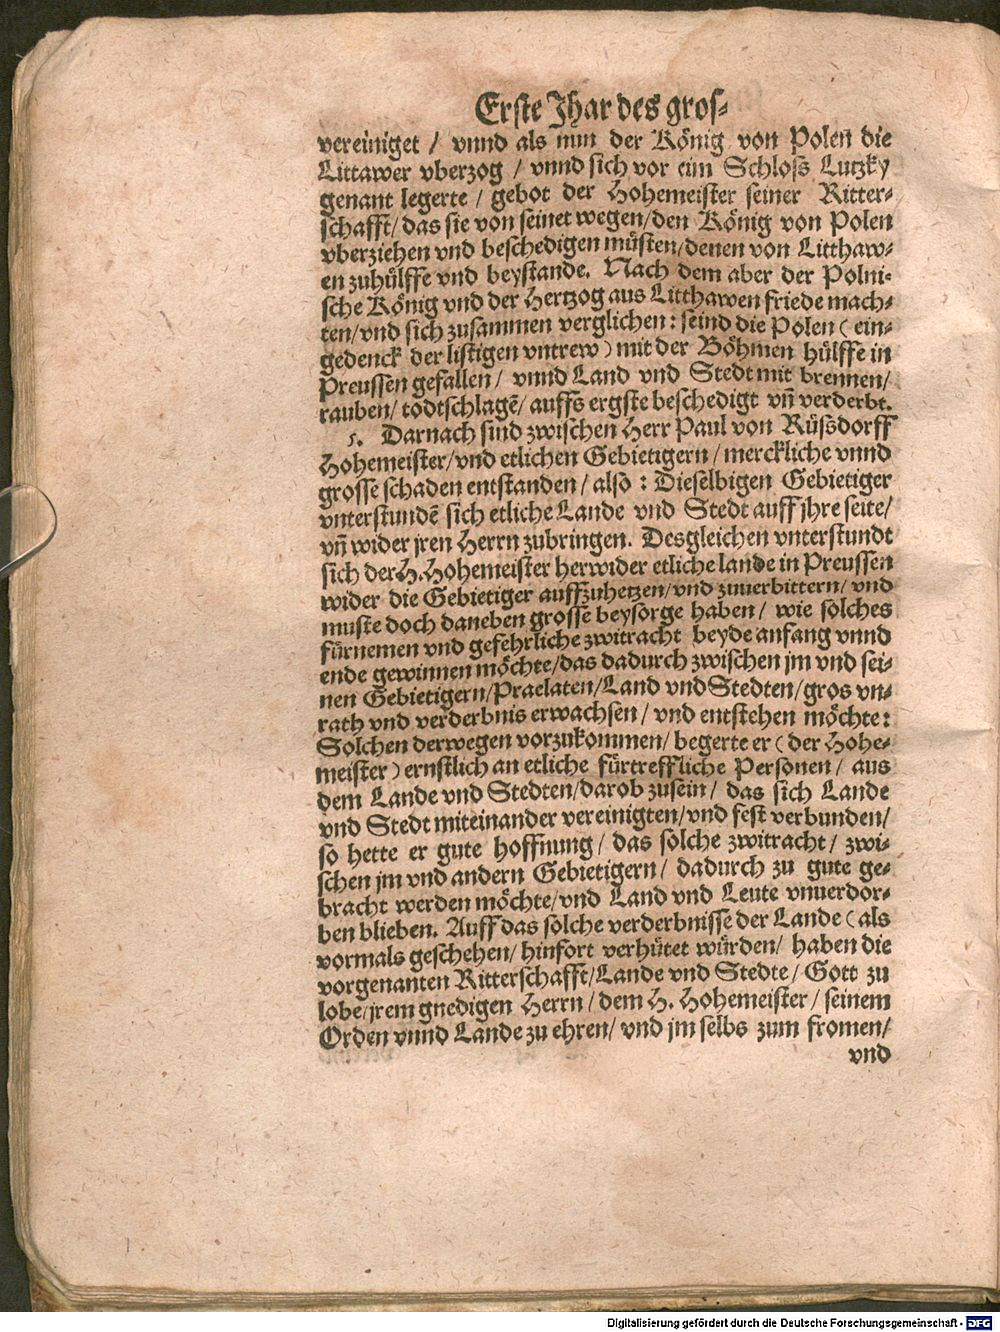 Erste Jhar des gros-
vereiniget / vnnd als nun der König von Polen die
Littawer vberzog / vnnd sich vor eim Schloss Lutzky
genant legerte / gebot der Hohemeister seiner Ritter-
schafft/ das sie von seinet wegen/den König von Polen
vberziehen vnd beschedigen müsten/denen von Litthaw-
en zuhülffe vnd beystande. Nach dem aber der Polni-
sche König vnd der Hertzog aus Litthawen friede mach-
ten/vnd sich zusammen verglichen: seind die Polen ( ein-
gedenck der listigen vntrew ) mit der Böhmen hülffe in
Preussen gefallen / vnnd Land vnd Stedt mit brennen/
rauben/ todtschlagē/ auffs ergste beschedigt vn̄ verderbt.
5. Darnach sind zwischen Herr Paul von Rüssdorff
Hohemeister/vnd etlichen Gebietigern / merckliche vnnd
grosse schaden entstanden/ also : Dieselbigen Gebietiger
vnterstundē sich etliche Lande vnd Stedt auff jhre seite/
vn̄ wider jren Herrn zubringen. Desgleichen vnterstundt
sich der H. Hohemeister herwider etliche lande in Preussen
wider die Gebietiger auffzuhetzen/vnd zuuerbittern/ vnd
muste doch daneben grosse beysorge haben / wie solches
fürnemen vnd gefehrliche zwitracht beyde anfang vnnd
ende gewinnen möchte/das dadurch zwischen jm vnd sei-
nen Gebietigern/Praelaten/Land vnd Stedten/gros vn-
rath vnd verderbnis erwachsen / vnd entstehen möchte:
Solchen derwegen vorzukommen/ begerte er ( der Hohe-
meister ) ernstlich an etliche fürtreffliche Personen / aus
dem Lande vnd Stedten/darob zusein / das sich Lande
vnd Stedt miteinander vereinigten/vnd fest verbunden/
so hette er gute hoffnung / das solche zwitracht / zwi-
schen jm vnd andern Gebietigern / dadurch zu gute ge-
bracht werden möchte/vnd Land vnd Leute vnuerdor-
ben blieben. Auff das solche verderbnisse der Lande ( als
vormals geschehen/ hinfort verhütet würden/ haben die
vorgenanten Ritterschafft/Lande vnd Stedte / Gott zu
lobe/jrem gnedigen Herrn / dem H. Hohemeister / seinem
Orden vnnd Lande zu ehren/ vnd jm selbs zum fromen/
vnd
Digitalisierung gefördert durch die Deutsche Forschungsgemeinschaft - DFG